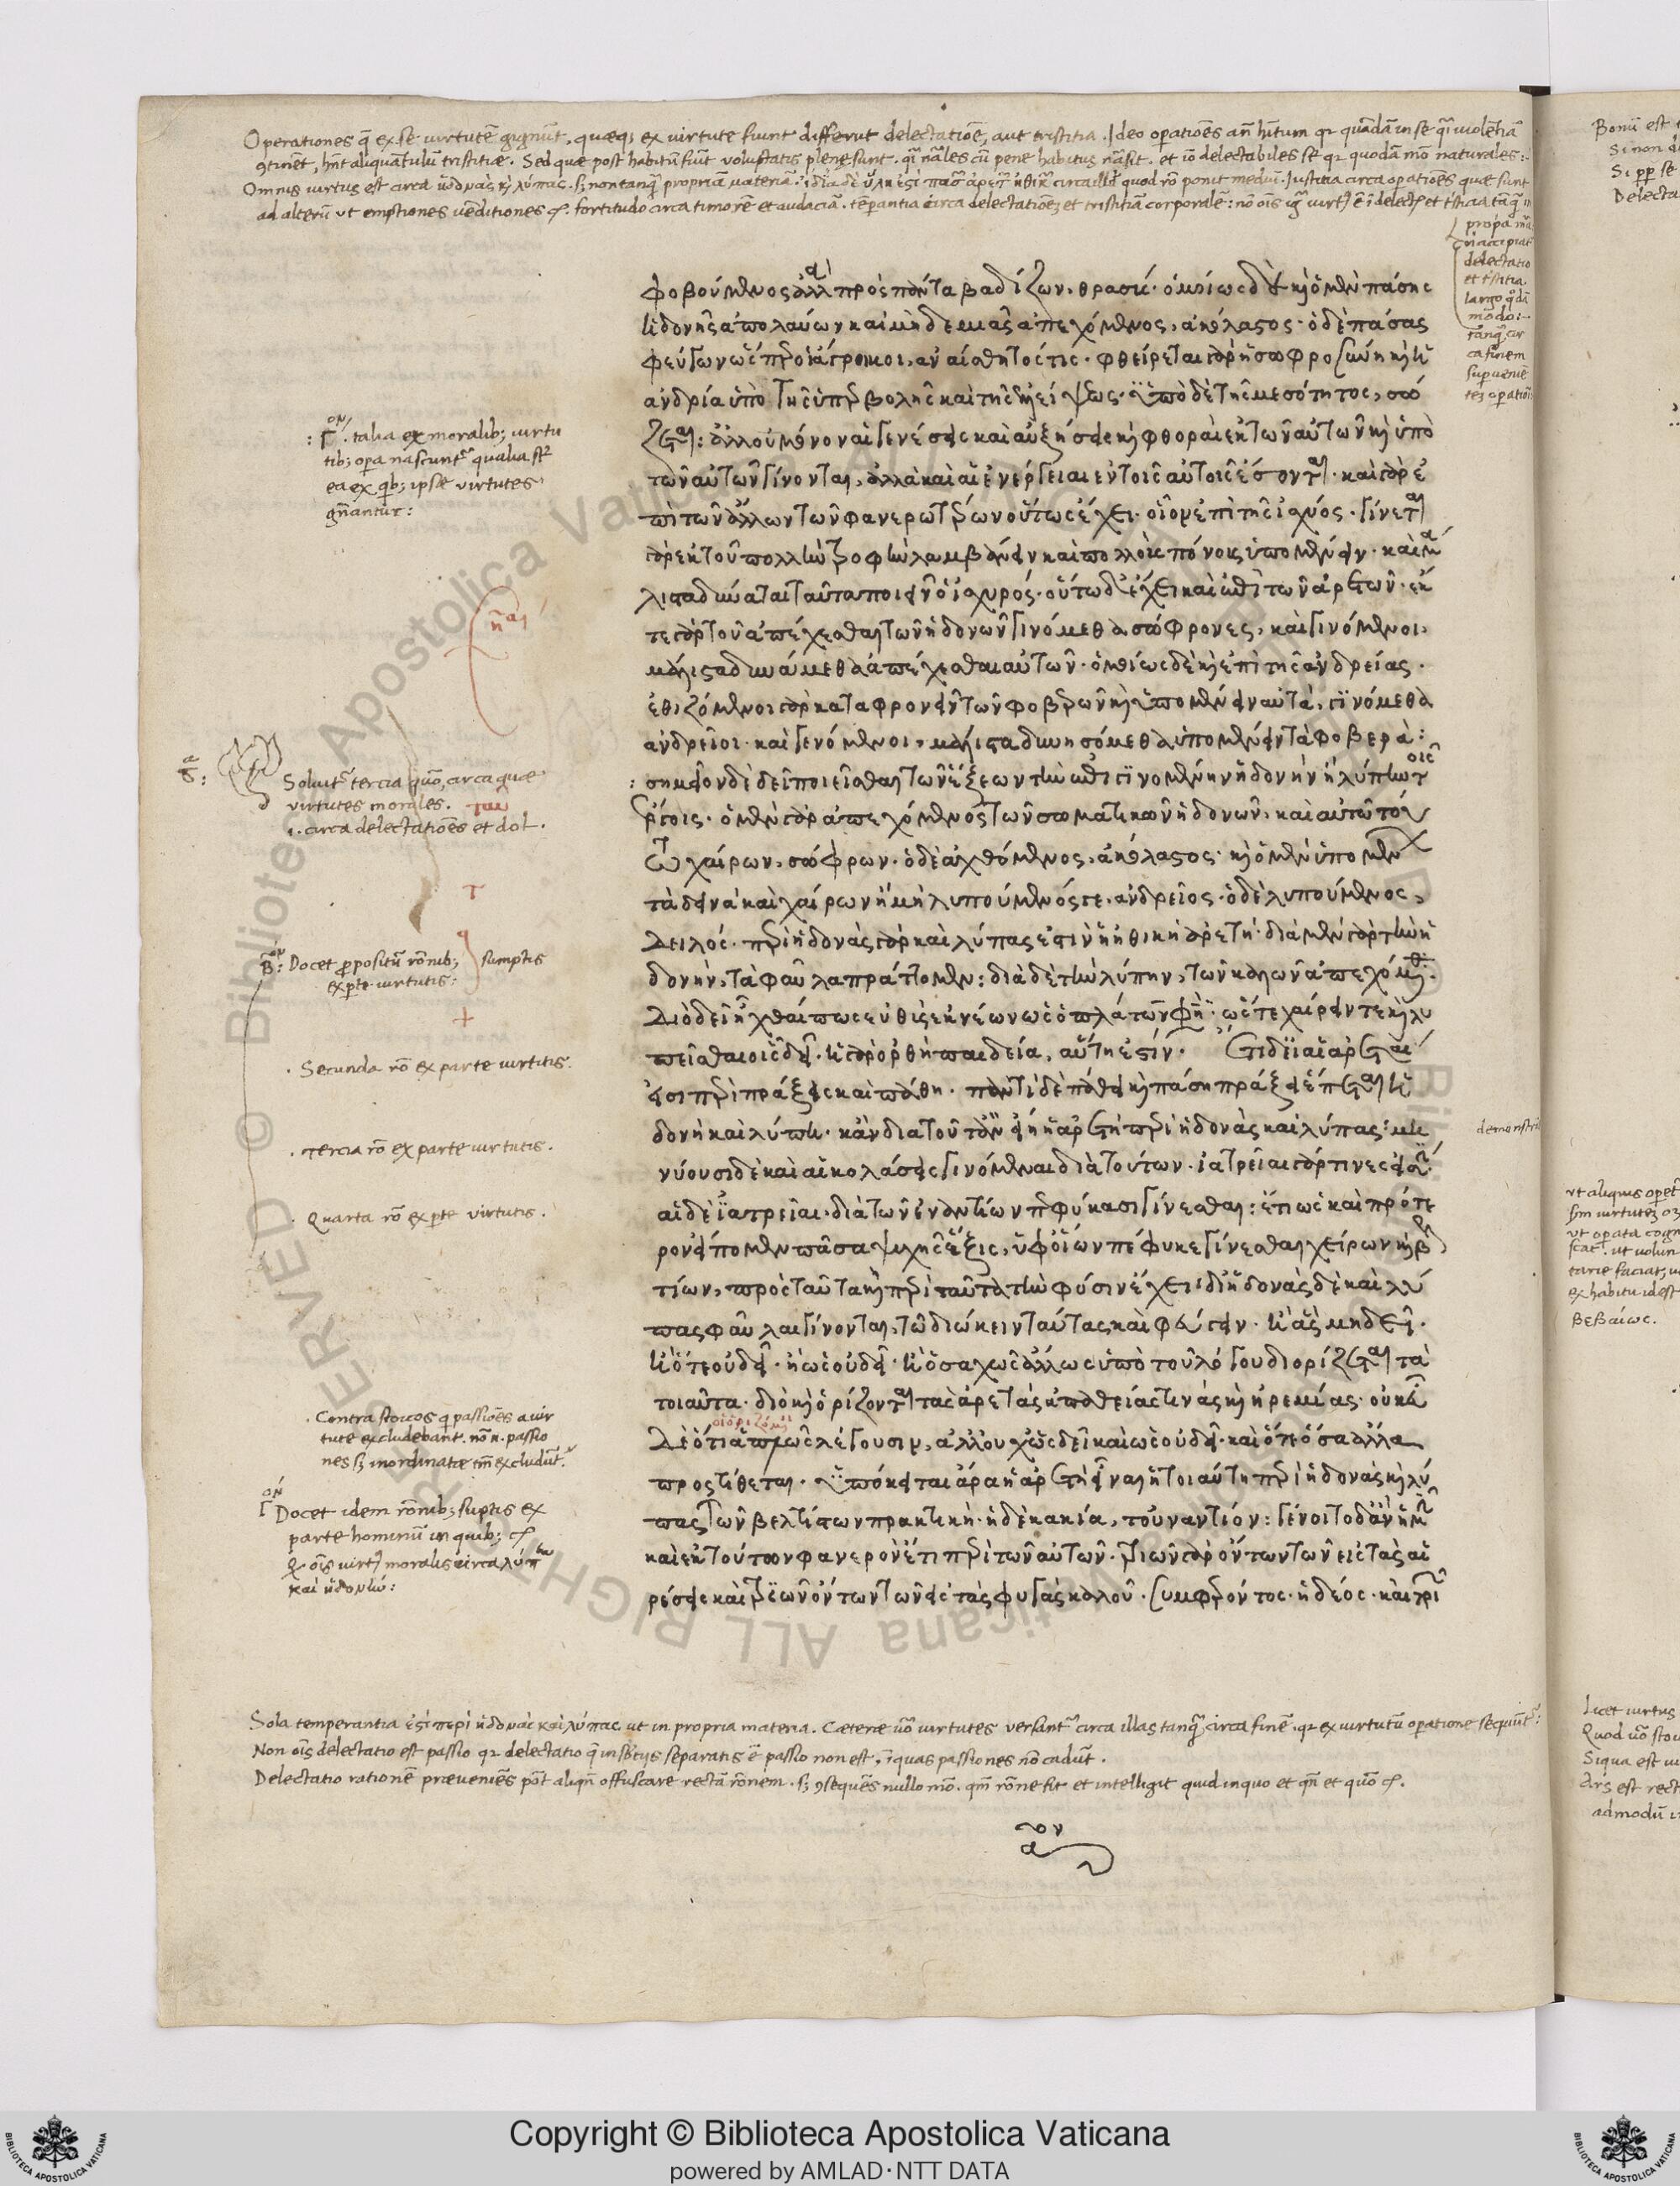 Operationes q̃ ex se virtutẽ gignũt, quæq; ex virtute fiunt differut delectatiõe, aut tristitia. Ideo operatiões añ hitum qr quãdã in se q̃i violẽtiã
9tinẽt, hñt aliquãtulũ tristitiæ. Sed quæ post habitũ fiũt voluptatis plenę sunt. et iõ delectabiles sũt qr quodã mõ naturales:
Omnis virtus est circa ἡδονὰς κὶ λύπας. s; non tanq̃ propriã materiã. quod rõ ponit mediũ. Justitia circa operatiões quæ sunt
ad alterũ ut emptiones vẽditiones. fortitudo circa timorẽ et audaciã. tẽperantia circa delectatiões et tristitiã corporalẽ:
delectatio
et tristitia
largo
mõdo:
φοβούμενος ἀλλὰ πρὸς πάντα βαδίζων, θρασύς· ὁμοίως δὲ κὶ ὁ μὲν πάσης
ἡδονῆς ἀπολαύων καὶ μὴδεμιᾶς ἀπεχόμενος, ἀκόλαστος· ὁ δὲ πάσας
φεύγων ὥσπερ οἱ ἄγροικοι, ἀναίσθητός τις· φθείρεται γὰρ ἡ σωφροσύνη κὶ ἡ
ἀνδρία ὑπὸ τῆς ὑπερβολῆς καὶ τῆς ἐλλείψεως· ὑπὸ δὲ τῆς μεσότητος, σώ
ζεται: ἀλλ' οὐ μόνον αἱ γενέσεις καὶ αὐξήσεις κὶ φθοραὶ ἐκ τῶν αὐτῶν κὶ ὑπὸ
τῶν αὐτῶν γίνονται, ἀλλὰ καὶ αἱ ἐνέργειαι ἐν τοῖς αὐτοῖς ἔσονται· καὶ γὰρ ἐ
πὶ τῶν ἄλλων τῶν φανερωτέρων οὕτως ἔχει· οἷον ἐπὶ τῆς ἰσχύος· γίνεται
γὰρ ἐκ τοῦ πολλὴν τροφὴν λαμβάνειν καὶ πολλοὺς πόνους ὑπομένειν· καὶ μά
λιστα δύναται ταῦτα ποιεῖν ὁ ἰσχυρός· οὕτω δ' ἔχει καὶ ἐπὶ τῶν ἀρετῶν· ἔκ
τε γὰρ τοῦ ἀπέχεσθαι τῶν ἡδονῶν γινόμεθα σώφρονες, καὶ γινόμενοι,
μάλιστα δυνάμεθα ἀπέχεσθαι αὐτῶν· ὁμοίως δὲ κὶ ἐπὶ τῆς ἀνδρείας·
ἐθιζόμενοι γὰρ καταφρονεῖν τῶν φοβερῶν κὶ ὑπομένειν αὐτὰ, γινόμεθα
ἀνδρεῖοι· καὶ γενόμενοι, μάλιστα δυνησόμεθα ὑπομένειν τὰ φοβερά:
σημεῖον δὲ δεῖ ποιεῖσθαι τῶν ἕξεων τὴν ἐπιγινομένην ἡδονὴν ἢ λύπην τοῖς
ἔργοις· ὁ μὲν γὰρ ἀπεχόμενος τῶν σωματικῶν ἡδονῶν, καὶ αὐτῷ τού
τῳ χαίρων, σώφρων· ὁ δὲ ἀχθόμενος, ἀκόλαστος· κὶ ὁ μὲν ὑπομένων
τὰ δεινὰ καὶ χαίρων ἢ μὴ λυπούμενός γε, ἀνδρεῖος· ὁ δὲ λυπούμενος,
δειλός· περὶ ἡδονὰς γὰρ καὶ λύπας ἐστὶν ἡ ἠθικὴ ἀρετή· διὰ μὲν γὰρ τὴν ἡ
δονὴν, τὰ φαῦλα πράττομεν: διὰ δὲ τὴν λύπην, τῶν καλῶν ἀπεχόμεθα.
Διὸ δεῖ ἦχθαί πως εὐθὺς ἐκ νέων ὡς ὁ πλάτων φησὶ· ὥστε χαίρειν τε κὶ λυ
πεῖσθαι οἷς δεῖ· ἡ γὰρ ὀρθὴ παιδεία, αὕτη ἐστίν· ἔτι δ' εἰ αἱ ἀρεταί
εἰσι περὶ πράξεις καὶ πάθη· παντὶ δὲ πάθει κὶ πάσῃ πράξει ἕπεται ἡ
δονὴ καὶ λύπη· κἂν διὰ τοῦτ' ἂν εἴη ἡ ἀρετὴ περὶ ἡδονὰς καὶ λύπας: μη
νύουσι δὲ καὶ αἱ κολάσεις γινόμεναι διὰ τούτων· ἰατρεῖαι γάρ τινές εἰσι·
αἱ δὲ ἰατρεῖαι, διὰ τῶν ἐναντίων πεφύκασι γίνεσθαι: ἔτι ὡς καὶ πρότε
ρον εἴπομεν πᾶσα ψυχῆς ἕξις, ὑφ' οἵων πέφυκε γίνεσθαι χείρων κὶ βελ
τίων, πρὸς ταῦτα κὶ περὶ ταῦτα τὴν φύσιν ἔχει· δι' ἡδονὰς δὲ καὶ λύ
πας φαῦλαι γίνονται, τῷ διώκειν ταύτας καὶ φεύγειν· ἢ ἃς μὴ δεῖ·
ἢ ὅτε οὐ δεῖ· ἢ ὡς οὐ δεῖ· ἢ ὁσαχῶς ἄλλως ὑπὸ τοῦ λόγου διορίζεται τὰ
τοιαῦτα· διὸ κὶ ὁρίζονται τὰς ἀρετὰς ἀπαθείας τινὰς κὶ ἠρεμίας· οὐκ εὖ
δὲ ὅτι ἁπλῶς λέγουσιν, ἀλλ' οὐχ ὡς δεῖ καὶ ὡς οὐ δεῖ· καὶ ὅτε ὅσα ἄλλα
προστίθεται· ὑπόκειται ἄρα ἡ ἀρετὴ εἶναι ἡ τοιαύτη περὶ ἡδονὰς κὶ λύ
πας τῶν βελτίστων πρακτική· ἡ δὲ κακία, τοὐναντίον: γένοιτο δ' ἂν ἡμῖν
καὶ ἐκ τούτων φανερὸν ἔτι περὶ τῶν αὐτῶν· τριῶν γὰρ ὄντων τῶν εἰς τὰς αἱ
ρέσεις καὶ τριῶν ὄντων τῶν εἰς τὰς φυγὰς καλοῦ· συμφέροντος· ἡδέος· καὶ τρι
talia ex moralib; virtu
tib; opa nascunt qualia st
ea ex qib; ipsæ virtutes
gñantur:
Soluit tercia quo, circa quæ
virtutes morales.
.i. circa delectatiões et dol.
Docet propositũ rõnib; sumptis
ex pte virtutis:
. Secunda rõ ex parte virtutis.
. tercia rõ ex parte virtutis.
. Quarta rõ ex pte virtutis.
. Contra stoicos q passiões a vir
tute excludebant. nõ n. passio
nes s; inordinatæ tm̃ excludũt.
Docet idem rõnib; suptis ex
parte hominũ in quib;
καὶ ἡδονὴν:
Sola temperantia ἐστὶ περὶ ἡδονὰς καὶ λύπας ut in propria materia. Cæteræ vo virtutes versant circa illas tanq̃ circa finẽ. qr ex virtutũ operatione sequũt:
Non oĩs delectatio est passio qr delectatio separatis ẽ passio non est. ĩ quas passiones nõ cadũt.
Delectatio rationẽ præveniẽs põt aliqñ offuscare rectã rõnem. s; 9sequẽs nullo mõ. qm̃ rõne fit et intelligit quid in quo et qñ et quõ
Copyright © Biblioteca Apostolica Vaticana
powered by AMLAD·NTT DATA